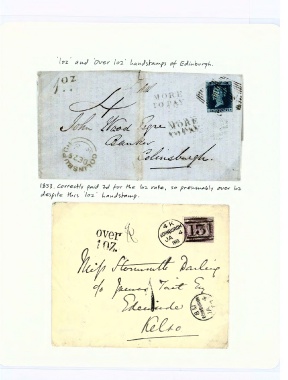 '1oz' and 'over 1oz' handstamps of Edinburgh.
1oz
MORE
TO PAY
MORE
TO PAY
John Wood Esqre
Banker
Colinsburgh.
1853. Correctly paid 2d for the 1oz rate, so presumably over 1oz
despite this '1oz' handstamp.
over
1 oz.
4 K
EDINBURGH
JA 4
131
Miss Stormonth Darling
c/o James Tait Esq
Edenside
Kelso